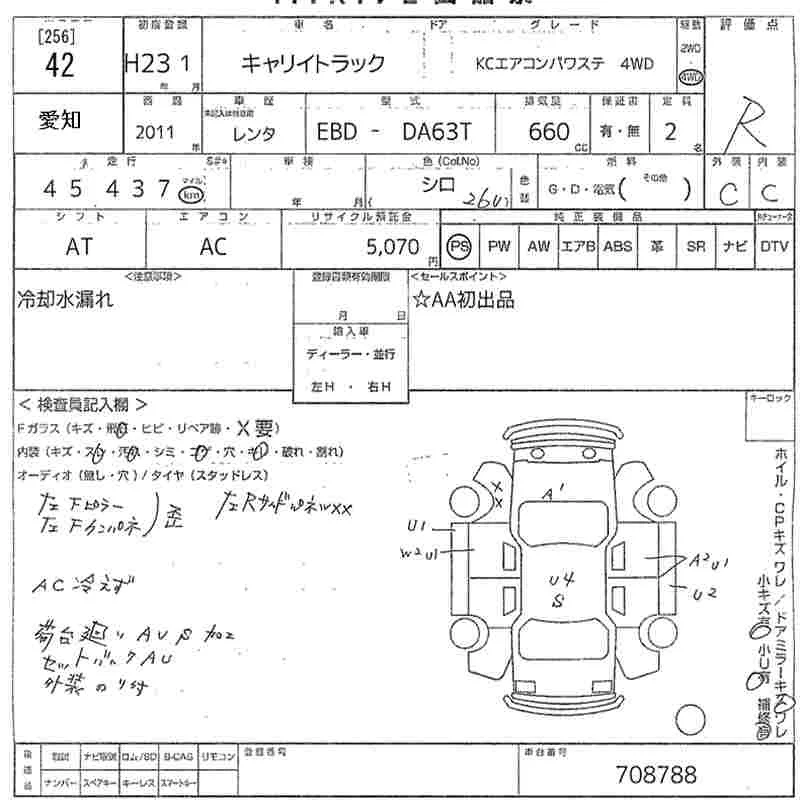 初度登録 車名 ドア グレード 駆動 評価点
[256]
42 H23 1 キャリイトラック KCエアコンパワステ 4WD 2WD 4WD
年 月
R
愛知
車歴 型式 排気量 保証書 定員
2011 年 レンタ EBD - DA63T 660 CC 有・無 2 名
走行 車検 色(Col.No) 燃料 外装 内装
45437 マイル km 年 月 シロ 26U 色替 G・D・電気( その他 ) C C
シフト エアコン リサイクル預託金 純正装備品
AT AC 5,070 円 PS PW AW エアB ABS 革 SR ナビ DTV
<注意事項> 登録書類有効期限 <セールスポイント>
冷却水漏れ ☆AA初出品
月 日
輸入車
ディーラー・並行
左H ・ 右H
<検査員記入欄> キーロック
Fガラス(キズ・飛石・ヒビ・リペア跡・X要)
内装(キズ・スレ・汚れ・シミ・コゲ・穴・キレ・破れ・割れ)
オーディオ(無し・穴)/タイヤ(スタッドレス)
左Fピラー
左Fインパネ 歪 左Rサイドパネルxx
AC冷えず
荷台廻り AUS 加工
セットバック AU
外装のり付
X
X
A1
U1
W2U1
A2U1
U4
S
U2
ホイル・CPキズワレ/ドアミラーキズワレ
小キズ有 小U有 補修有
取説 ナビ取説 ロム/SD B-CAS リモコン 登録番号 車台番号
ナンバー スペアキー キーレス スマートキー
708788